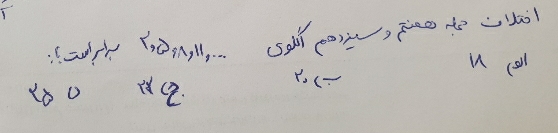 اختلاف جمله هفتم و سیزدهم الگوی ۲،۵،۸،۱۱،... برابر است؟:
الف) ۱۸ ب) ۲۰ ج) ۲۳ د) ۲۵